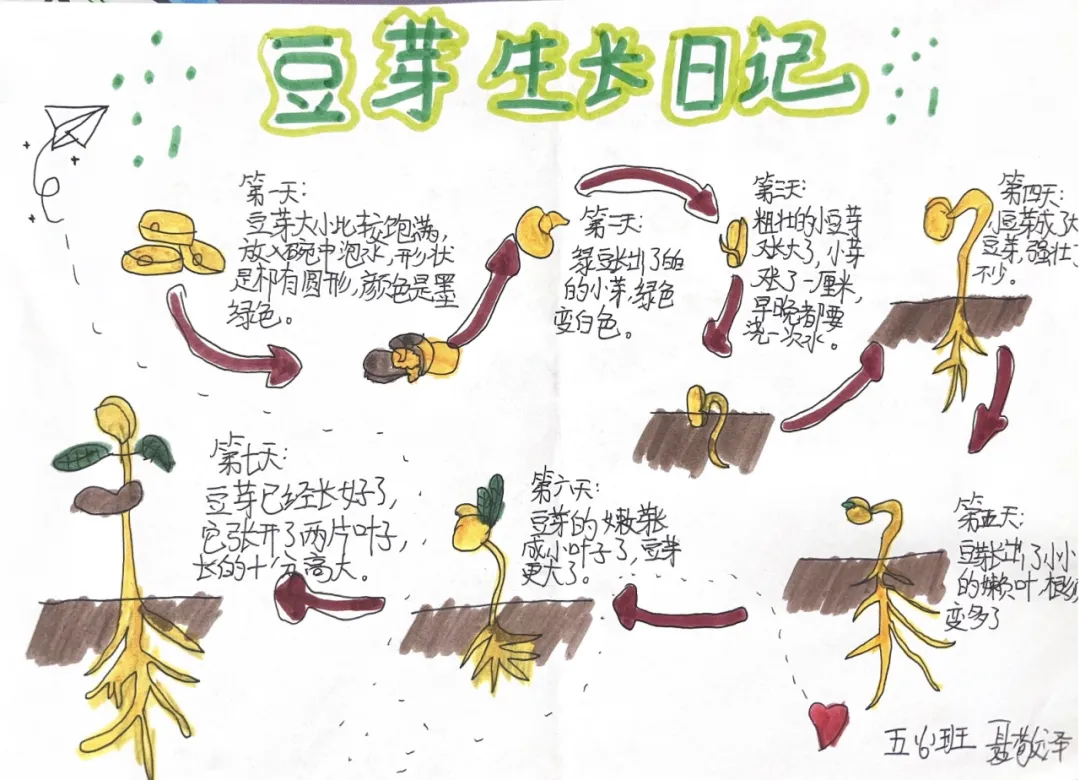 豆芽生长日记
第一天:
豆芽大小比较饱满,
放入碗中泡水,形状
是椭有圆形,颜色是墨
绿色。
第二天:
绿豆长出了白色
的小芽,绿色
变白色。
第三天:
粗壮的小豆芽
又长大了,小芽
又长了一厘米,
早晚都要
浇一次水。
第四天:
小豆芽成了大
豆芽,强壮
不少。
第五天:
豆芽长出了小小
的嫩叶,根
变多了
第六天:
豆芽的嫩芽长
成小叶子了,豆芽
更大了。
第七天:
豆芽已经长好了,
它张开了两片叶子,
长的十分高大。
五(6)班 聂敬泽